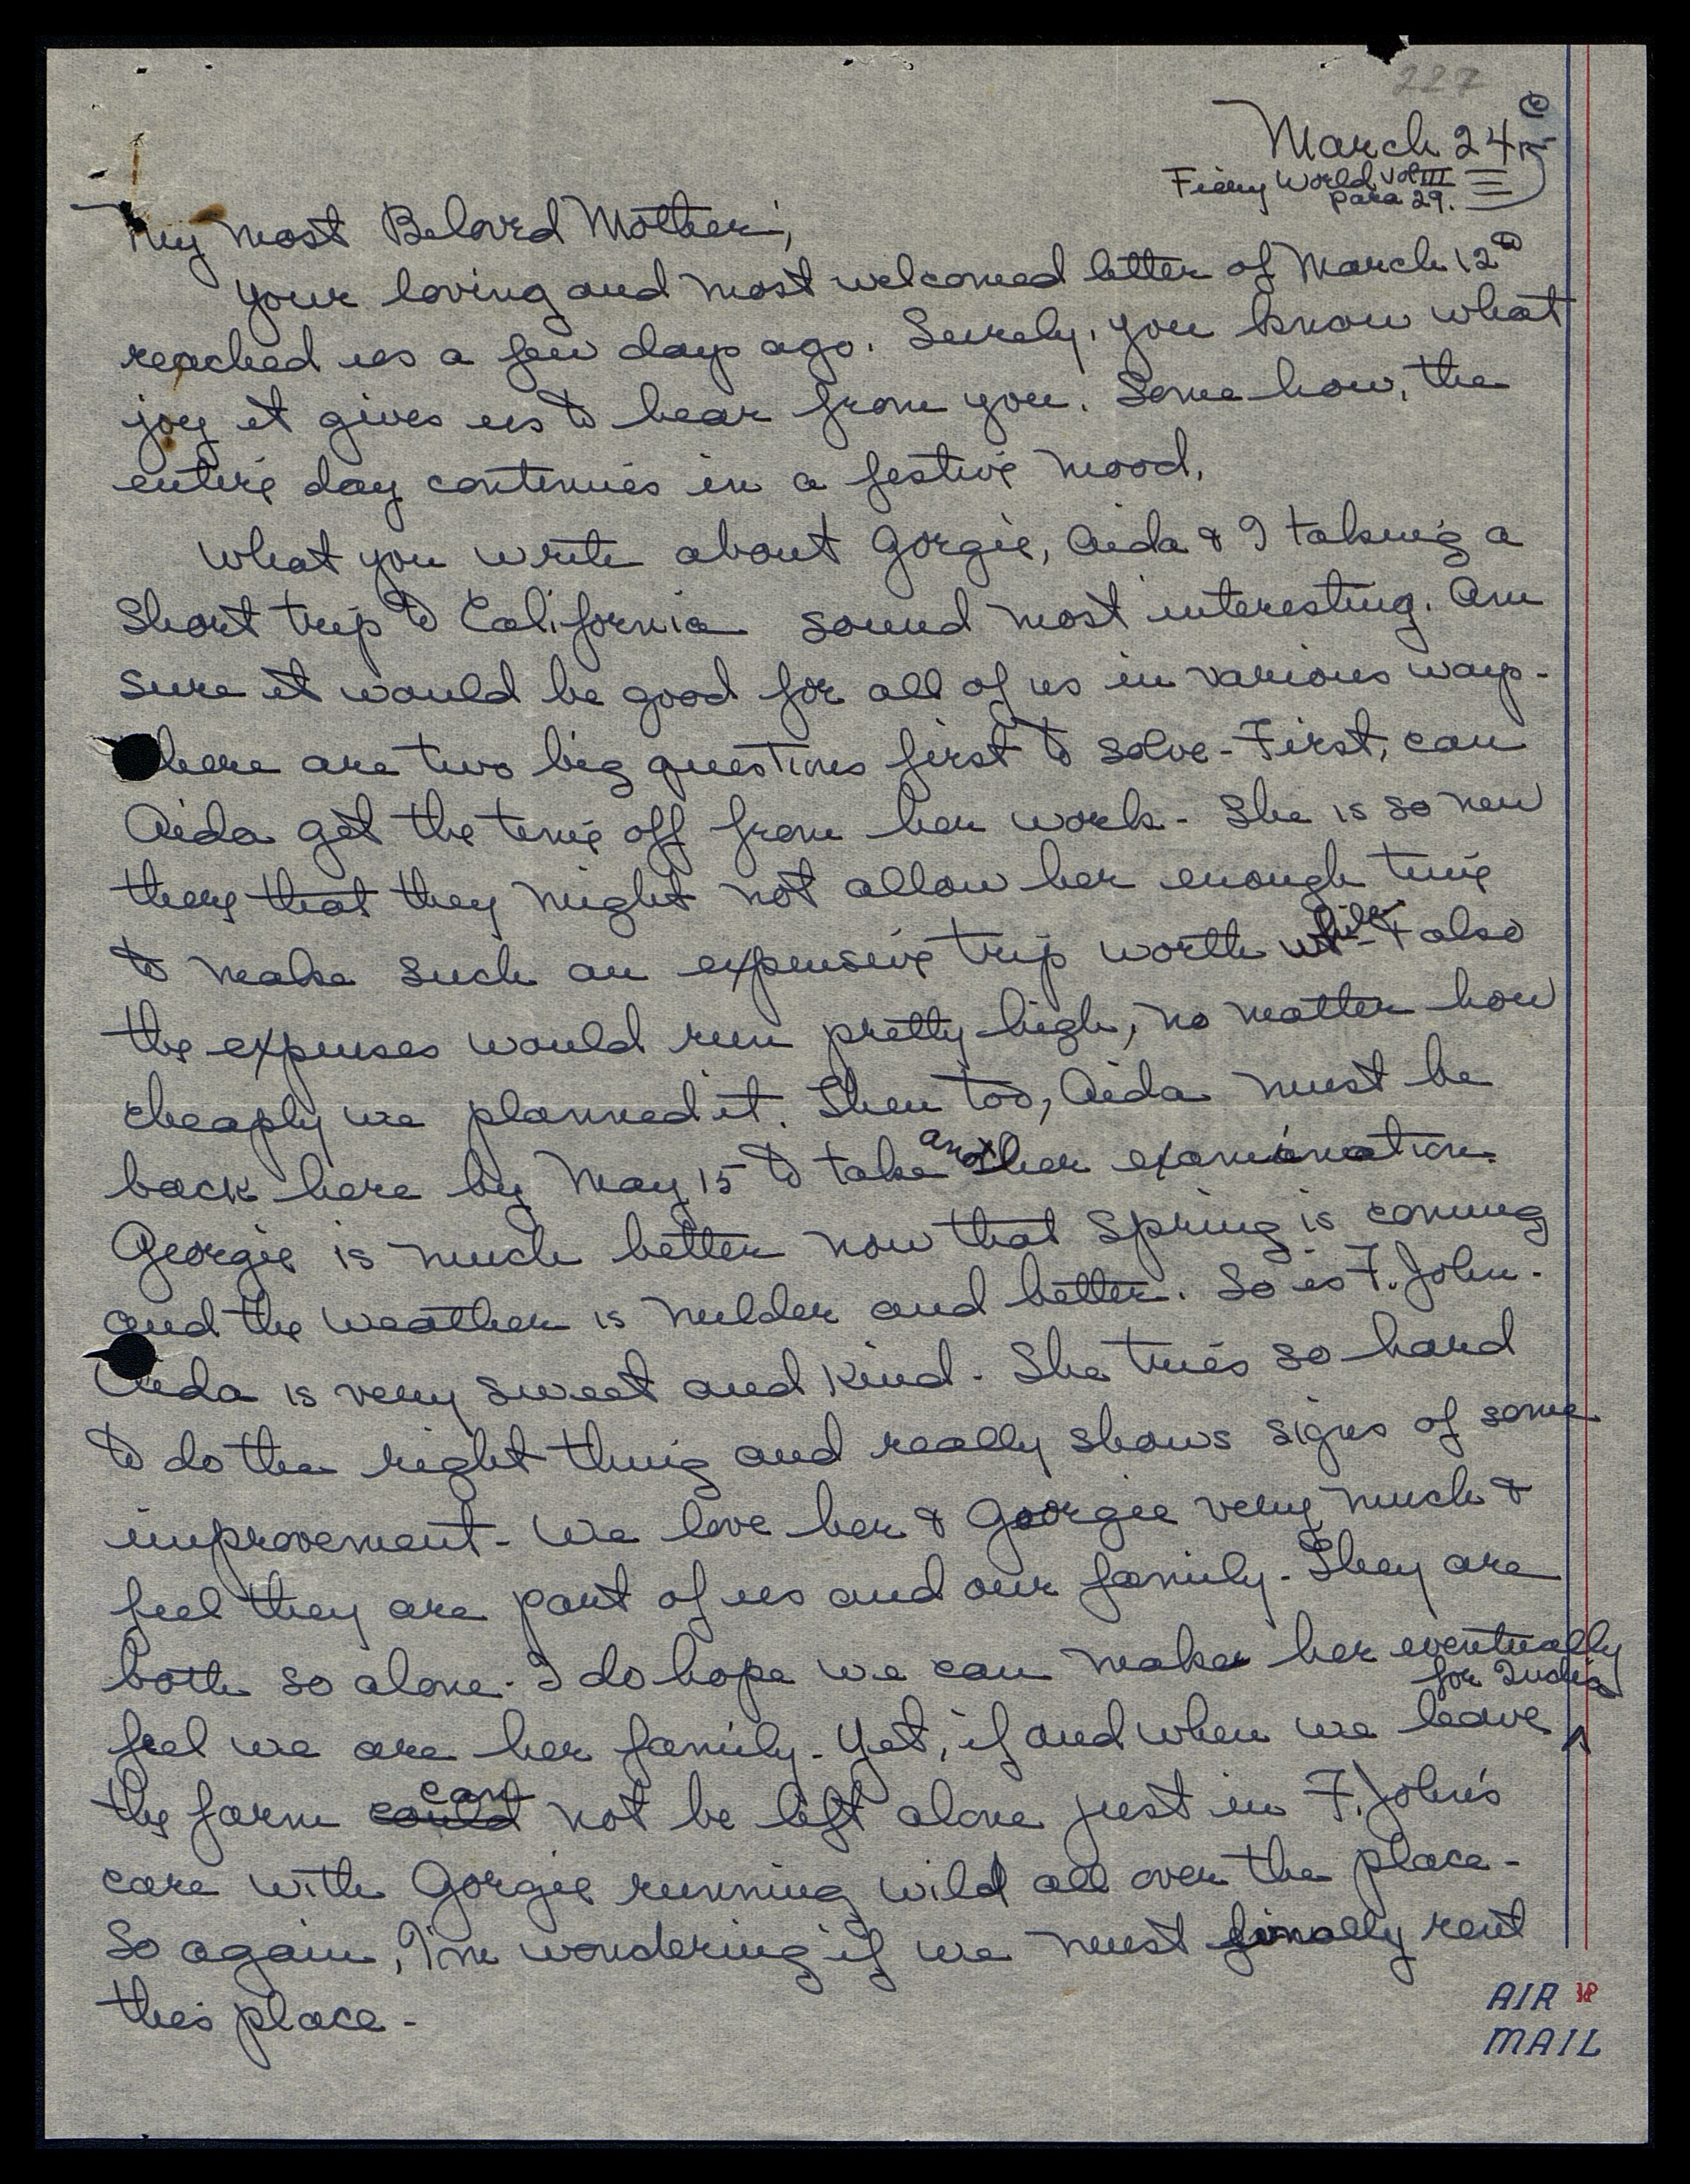 227
March 24
Fiery World Vol III
para 29.
My most Beloved Mother;
Your loving and most welcomed letter of March 12
reached us a few days ago. Surely, you know what
joy it gives us to hear from you. Some how, the
entire day continues in a festive mood.
What you write about Gorgie, Aida & I taking a
short trip to California sound most interesting. Am
sure it would be good for all of us in various ways.
here are two big questions first to solve - First, can
Aida get the time off from her work - She is so new
there that they might not allow her enough time
to make such an expensive trip worth while & also
the expenses would run pretty high, no matter how
cheaply we planned it. Then too, Aida must be
back here by May 15 to take another examination.
Georgie is much better now that spring is coming
and the weather is milder and better. So is F. John.
Aida is very sweet and kind. She tries so hard
to do the right thing and really shows signs of some
improvement - We love her & Georgie very much &
feel they are part of us and our family - They are
both so alone. I do hope we can make her eventually
feel we are her family - Yet, if and when we leave for India
the farm could can not be left alone just in F. John's
care with Gorgie running wild all over the place -
So again, I'm wondering if we must finally rent
this place -
AIR
MAIL